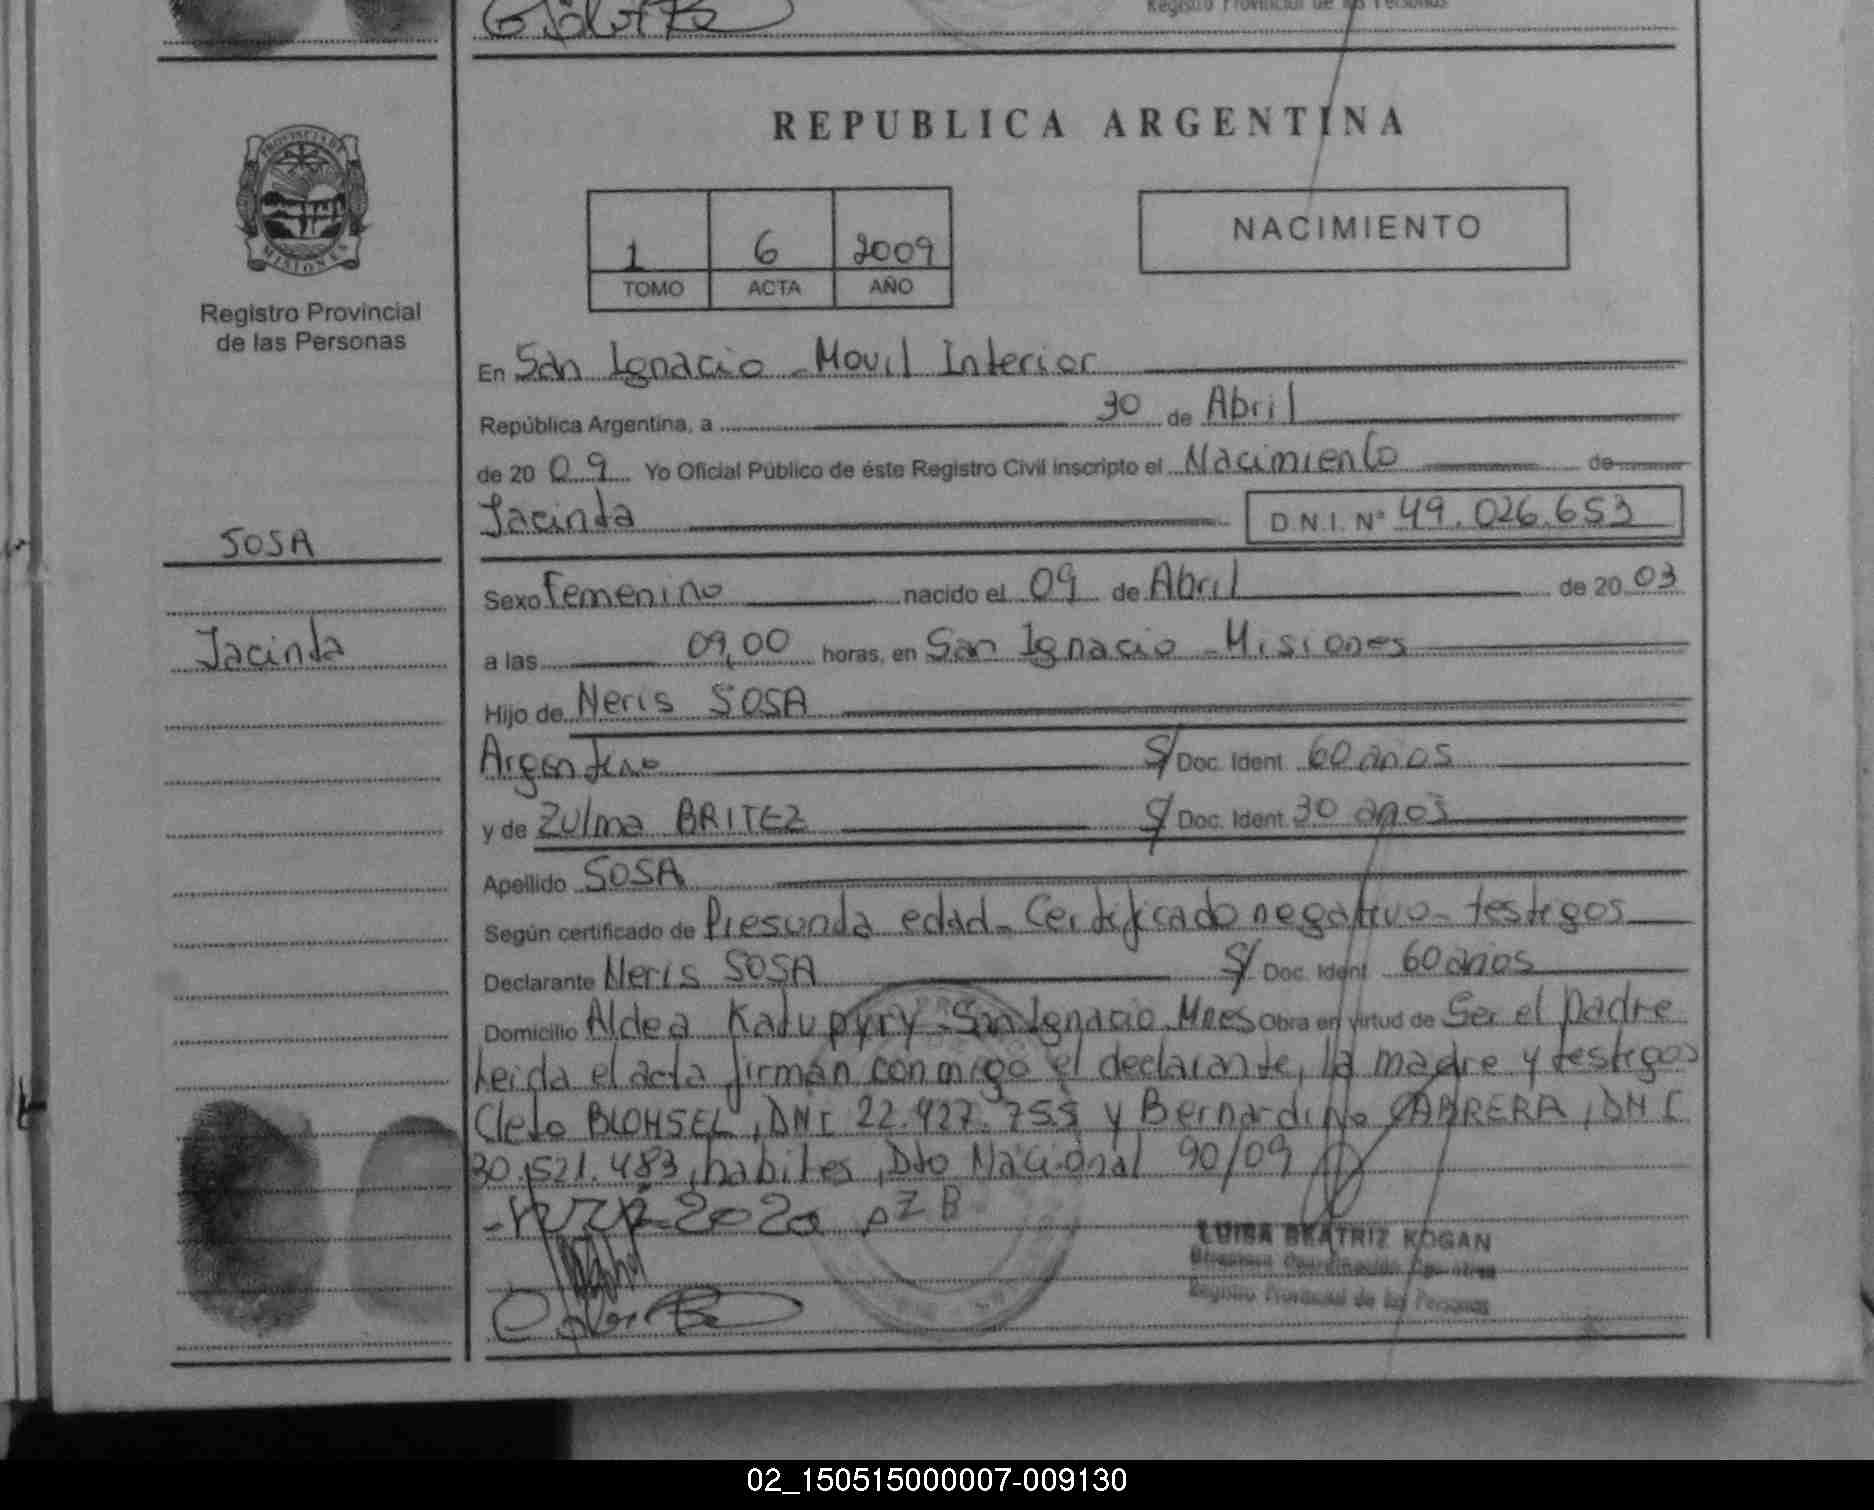 Registro Provincial de las Personas
PROVINCIA DE
MISIONES
Registro Provincial
de las Personas
SOSA
Jacinta
REPUBLICA ARGENTINA
1 6 2009
TOMO ACTA AÑO
NACIMIENTO
En San Ignacio - Movil Interior
República Argentina, a 30 de Abril
de 20 09 Yo Oficial Público de éste Registro Civil inscripto el Nacimiento de
Jacinta D.N.I. N° 49.026.653
Sexo Femenino nacido el 09 de Abril de 20 03
a las 09,00 horas, en San Ignacio - Misiones
Hijo de Neris SOSA
Argentino S/ Doc. Ident. 60 años
y de Zulma BRITEZ S/ Doc. Ident. 30 años
Apellido SOSA
Según certificado de Presunta edad - Certificado negativo - testigos
Declarante Neris SOSA S/ Doc. Ident. 60 años
Domicilio Aldea Katupyry - San Ignacio Mnes Obra en virtud de Ser el padre
Leida el acta firman conmigo el declarante, la madre y testigos
Cleto BLOHSEL, DNI 22.927.755 y Bernardino CABRERA, DNI
30.521.483, habiles, Dto Nacional 90/09
Z B
LUISA BEATRIZ KOGAN
Registro Provincial de las Personas
02_150515000007-009130